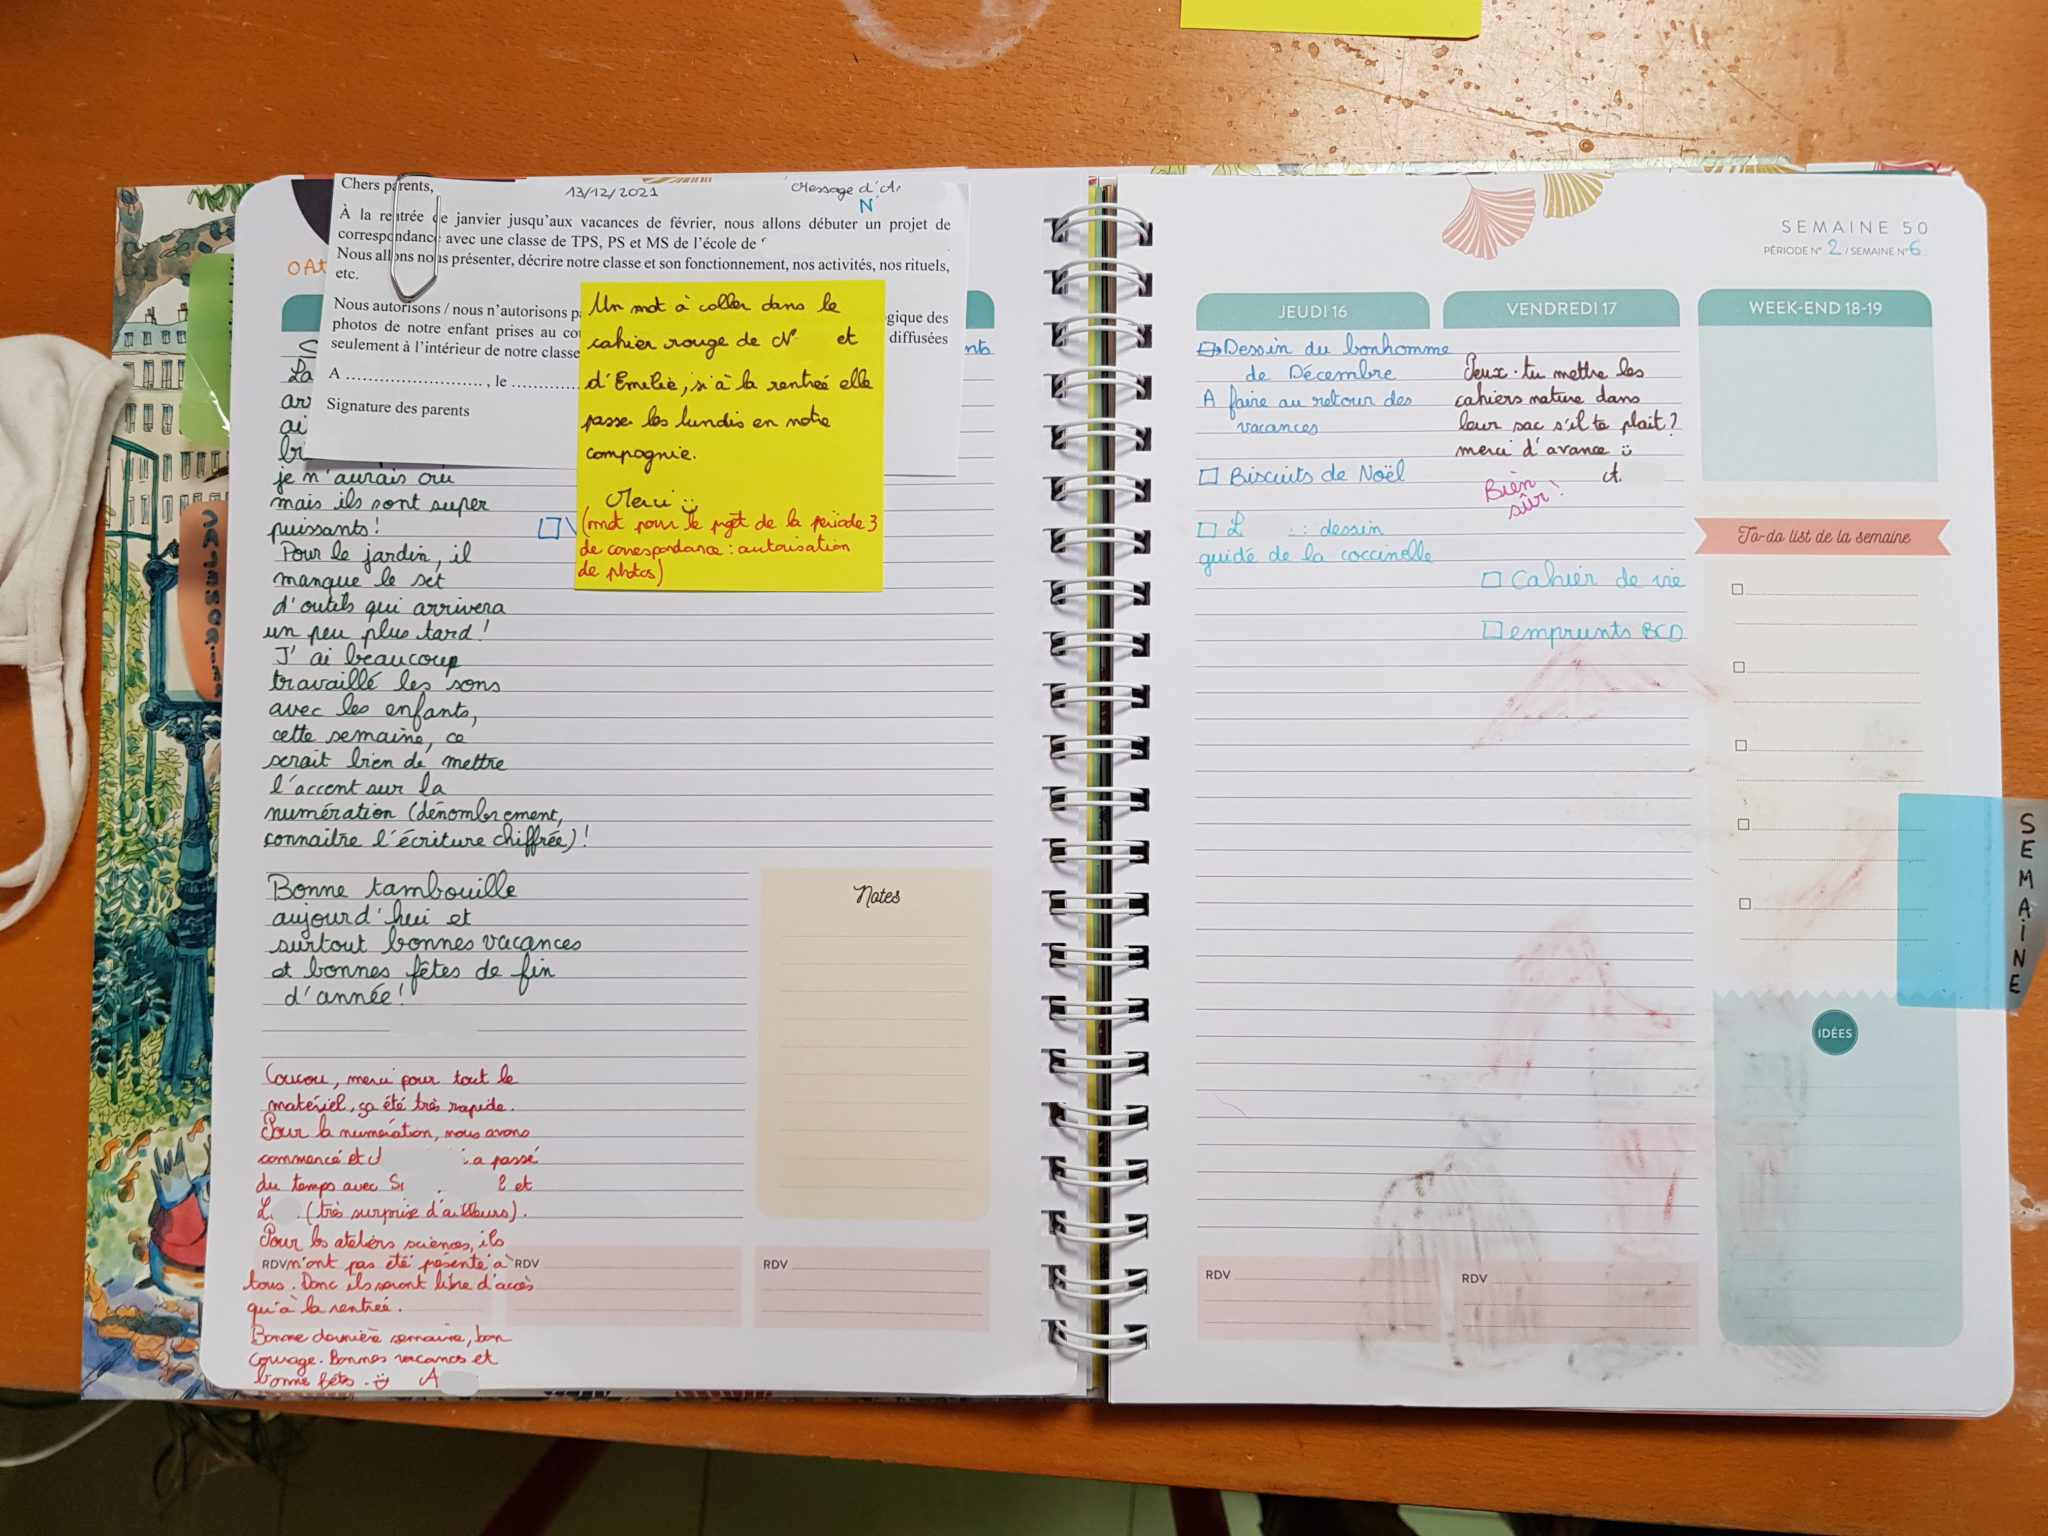 Chers parents,
13/12/2021
Message d'A
N
À la rentrée de janvier jusqu'aux vacances de février, nous allons débuter un projet de
correspondance avec une classe de TPS, PS et MS de l'école de
Nous allons nous présenter, décrire notre classe et son fonctionnement, nos activités, nos rituels,
etc.
Nous autorisons / nous n'autorisons
gique des
photos de notre enfant prises au
diffusées
seulement à l'intérieur de notre classe
A ........................ , le ............
Signature des parents
Un mot à coller dans le
cahier rouge de N et
d'Emilie, si à la rentrée elle
passe les lundis en notre
compagnie.
Merci
(mot pour le projet de la période 3
de correspondance : autorisation
de photos)
La
je n'aurais cru
mais ils sont super
puissants !
Pour le jardin, il
manque le set
d'outils qui arrivera
un peu plus tard !
J'ai beaucoup
travaillé les sons
avec les enfants,
cette semaine, ce
serait bien de mettre
l'accent sur la
numération (dénombrement,
connaitre l'écriture chiffrée) !
Bonne tambouille
aujourd'hui et
surtout bonnes vacances
et bonnes fêtes de fin
d'année !
Coucou, merci pour tout le
matériel, ça été très rapide.
Pour la numération, nous avons
commencé et a passé
du temps avec S et
L (très surprise d'ailleurs).
Pour les ateliers sciences, ils
n'ont pas été présenté à
tous. Donc ils seront libre d'accès
qu'à la rentrée.
Bonne dernière semaine, bon
courage. Bonnes vacances et
bonne fêtes. A
Notes
RDV
RDV
RDV
SEMAINE 50
PÉRIODE N° 2 / SEMAINE N° 6
JEUDI 16
Dessin du bonhomme
de Décembre
A faire au retour des
vacances
Biscuits de Noël
L : dessin
guidé de la coccinelle
RDV
VENDREDI 17
Peux-tu mettre les
cahiers nature dans
leur sac s'il te plait ?
merci d'avance
A.
Bien
sûr !
Cahier de vie
emprunts BCD
RDV
WEEK-END 18-19
To-do list de la semaine
IDÉES
SEMAINE